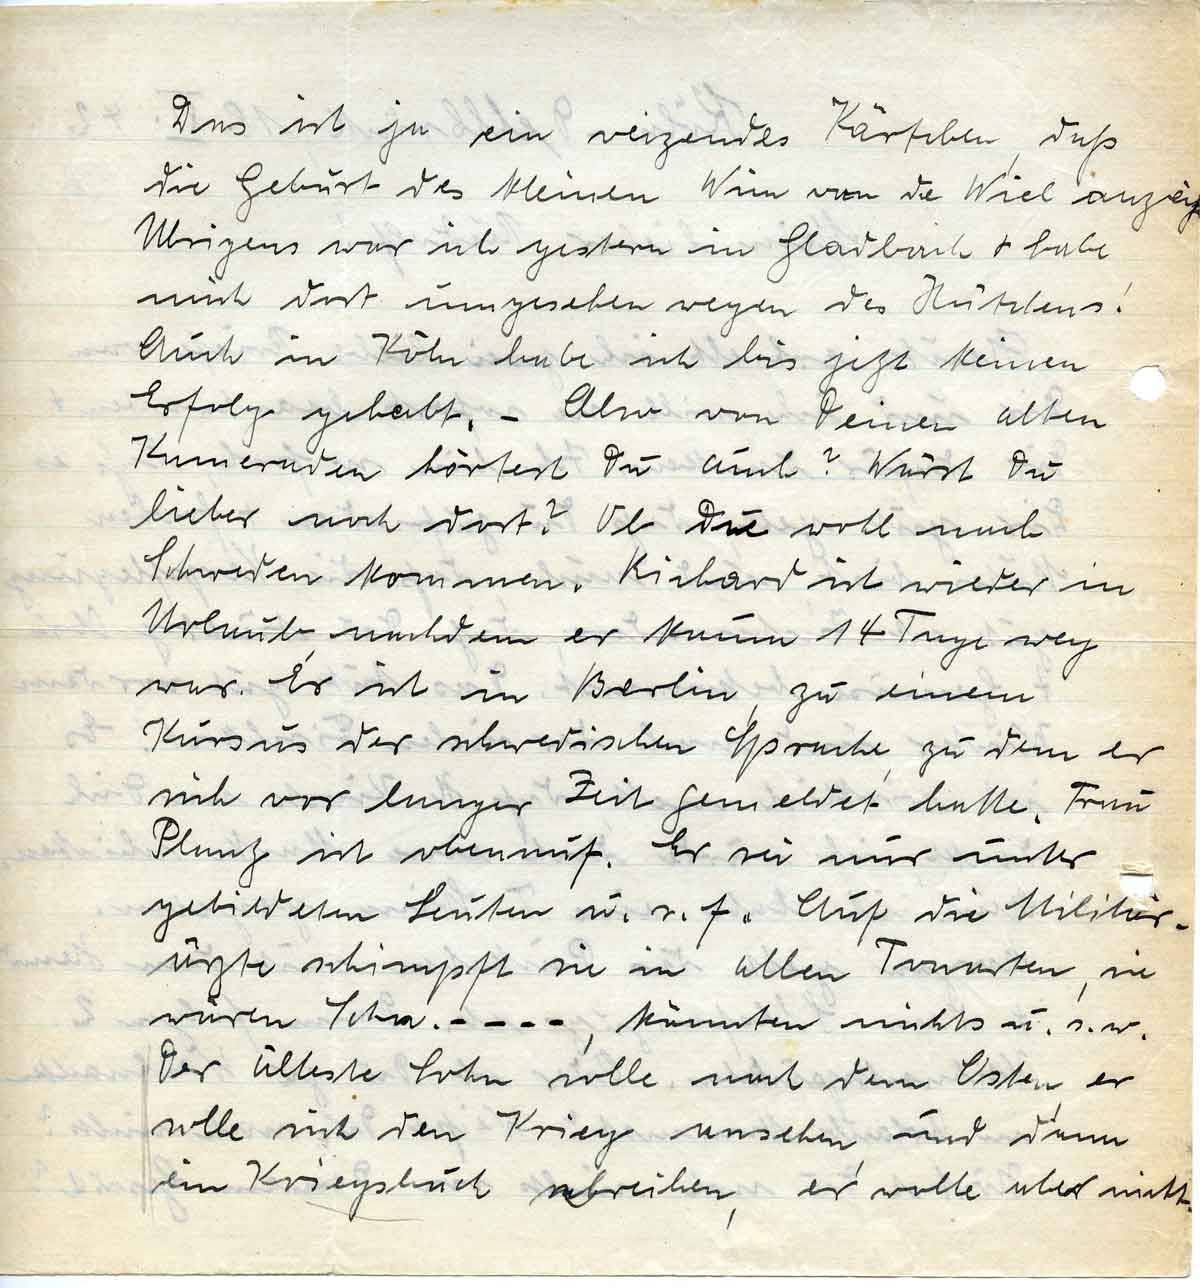 Das ist ja ein reizendes Kärtchen, daß
die Geburt des kleinen Wim van de Wiel anzeigt
Übrigens war ich gestern in Gladbach + habe
mich dort umgesehen wegen des Hütchens!
Auch in Köln habe ich bis jetzt keinen
Erfolg gehabt. – Also von Deinen alten
Kameraden hörtest Du auch? Wärst Du
lieber noch dort? Ob Die wohl nach
Schweden kommen. Richard ist wieder in
Urlaub, nachdem er kaum 14 Tage weg
war. Er ist in Berlin, zu einem
Kursus der schwedischen Sprache, zu dem er
sich vor langer Zeit gemeldet hatte. Frau
Plantz ist obenauf. Er sei nur unter
gebildeten Leuten u. s. f. Auf die Militär-
ärzte schimpft sie in allen Tonarten, sie
wären Scha.----, könnten nichts u. s. w.
Der älteste Sohn solle nach dem Osten, er
solle sich den Krieg ansehen, und dann
ein Kriegsbuch schreiben, er wolle aber nicht.